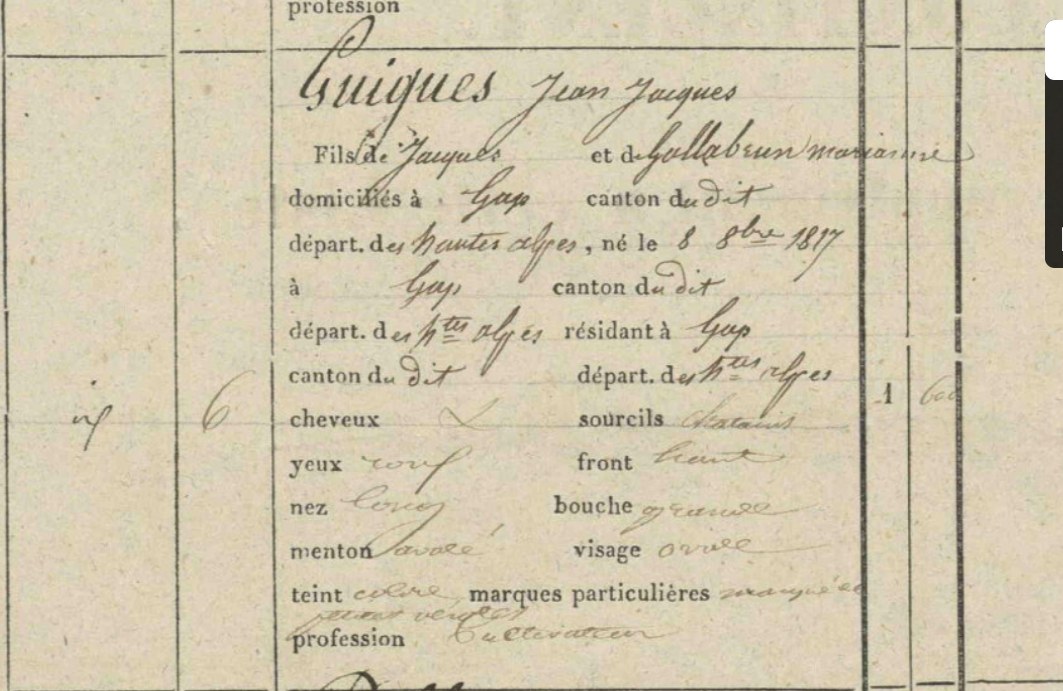 profession
Guigues Jean Jacques
Fils de Jacques et de Gallabrun marianne
domiciliés à Gap canton du dit
départ. des hautes alpes, né le 8 8bre 1817
à Gap canton du dit
départ. des htes alpes résidant à Gap
canton du dit départ. des htes alpes
6 cheveux sourcils chatains 1
yeux roux front haut
nez long bouche grande
menton visage ovale
teint coloré marques particulières marqué de
petites véroles
profession Cultivateur